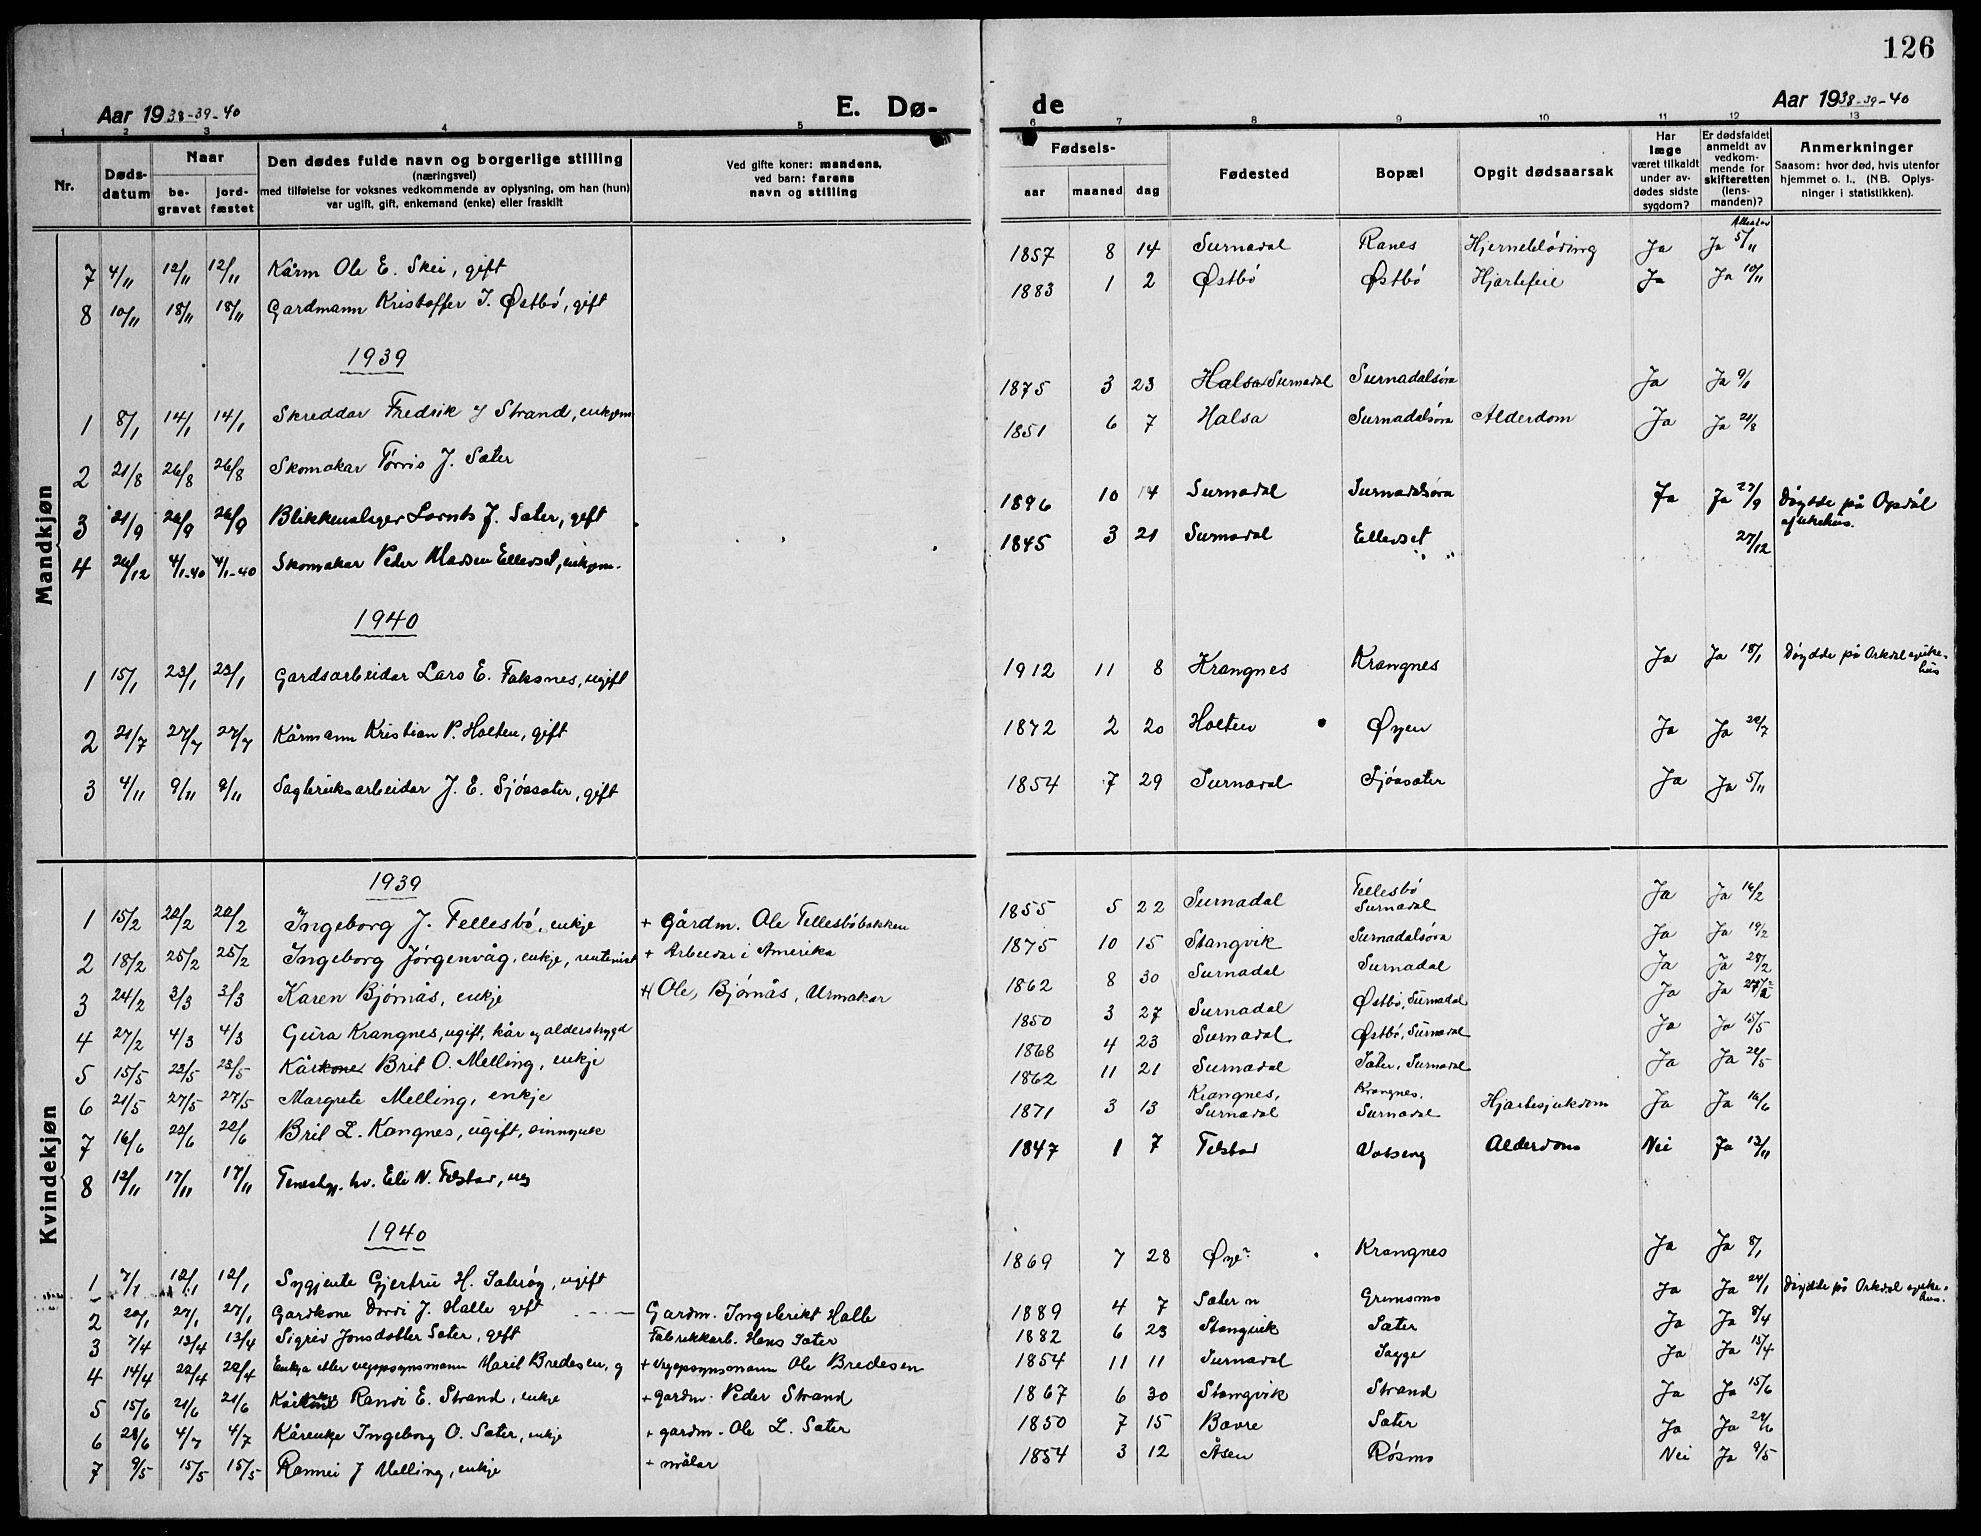 126
Aar 1938-39-40 E. Dø- de Aar 1938-39-40
1 2 3 4 5 6 7 8 9 10 11 12 13
Nr. Døds-datum Naar be-gravet jord-fæstet Den dødes fulde navn og borgerlige stilling (næringsvei) med tilføielse for voksnes vedkommende av oplysning, om han (hun) var ugift, gift, enkemand (enke) eller fraskilt Ved gifte koner: mandens, ved barn: farens navn og stilling Fødsels- aar maaned dag Fødested Bopæl Opgit dødsaarsak Har læge været tilkaldt under av-dødes sidste sygdom? Er dødsfaldet anmeldt av vedkom-mende for skifteretten (lens-manden)? Anmerkninger Saasom: hvor død, hvis utenfor hjemmet o. l., (NB. Oplys-ninger i statistikken).
Mandkjøn
7 4/11 12/11 12/11 Kårm Ole E. Skei, gift 1857 8 14 Surnadal Ranes Hjernebløding Ja Ja 5/11
8 10/11 18/11 18/11 Gardmann Kristoffer J. Østbø, gift 1883 1 2 Østbø Østbø Hjartefeil Ja Ja 10/11
1939
1 8/1 14/1 14/1 Skreddar Fredrik Strand, enkjem 1875 3 23 Halsa Surnadal Surnadalsøra Ja Ja 9/1
2 21/8 26/8 26/8 Skomakar J. Sæter 1851 6 7 Halsa Surnadalsøra Alderdom Ja Ja 21/8
3 21/9 26/9 26/9 Blikkenslager Lornts J. Sæter, gift 1896 10 14 Surnadal Surnadalsøra Ja Ja 23/9 Døydde på Opdal sjukehus.
4 26/12 4/1-40 4/1-40 Skomakar Peder Madsen Ellevset, enkjem. 1845 3 21 Surnadal Ellevset 27/12
1940
1 15/1 23/1 23/1 Gardsarbeidar Lars E. Faksnes, ugift 1912 11 8 Krangnes Krangnes Ja Ja 18/1 Døydde på Orkdal sjuke-hus
2 21/7 27/7 27/7 Kårmann Kristian P. Holten, gift 1872 2 20 Holten Øyen Ja Ja 22/7
3 4/11 9/11 9/11 Sagbruksarbeidar J. E. Sjøasæter, gift 1854 7 29 Surnadal Sjøasæter Ja Ja 5/11
Kvindekjøn
1939
1 15/2 22/2 22/2 Ingeborg J. Tellesbø, enkje + Gårdm. Ole Tellesbøbakken 1855 5 22 Surnadal Tellesbø Surnadal Ja Ja 16/2
2 18/2 25/2 25/2 Ingeborg Jørgenvåg, enkje, rentenist + Arbeidar i Amerika 1875 10 15 Stangvik Surnadalsøra Ja Ja 19/2
3 24/2 3/3 3/3 Karen Bjørnås, enkje + Ole, Bjørnås, Urmakar 1862 8 30 Surnadal Surnadal Ja Ja 28/2
4 27/2 4/3 4/3 Gura Krangnes, ugift, kår og alderstrygd 1850 3 27 Surnadal Østbø, Surnadal Ja Ja
5 15/5 23/5 23/5 Kårkone Brit O. Melling, enkje 1868 4 23 Surnadal Østbø, Surnadal Ja Ja 15/5
6 21/5 27/5 27/5 Margrete Melling, enkje 1862 11 21 Surnadal Sæter, Surnadal Ja Ja 22/5
7 16/6 22/6 22/6 Brit L. Kangnes, ugift, sinnsjuk 1871 3 13 Krangnes, Surnadal Krangnes, Surnadal Hjartesjukdom Ja Ja 16/6
8 12/11 17/11 17/11 hv. Eli N. Telstad, ug 1847 1 7 Telstad Alderdom Nei Ja 13/11
1940
1 7/1 12/1 12/1 Sygjente Gjertru H. Sæterøy, ugift 1869 7 28 Øye Krangnes Ja Ja 8/1
2 20/1 27/1 27/1 Gardkone Dordi J. Halle gift Gardm. Ingebrikt Halle 1889 4 7 Sæter Gremsmo Ja Ja 24/1 Døydde på Orkdal sjuke-hus.
3 7/4 13/4 13/4 Sigrid Jonsdotter Sæter, gift Fabrikkarb. Hans Sæter 1882 6 23 Stangvik Sæter Ja Ja 8/4
4 14/4 22/4 22/4 Enkja etter vegoppsynsmann Marit Bredesen, g + Vegoppsynsmann Ole Bredesen 1854 11 11 Surnadal Sagge Ja Ja 15/4
5 15/6 21/6 21/6 Randi E. Strand, enkje + gardm. Peder Strand 1867 6 30 Stangvik Strand Ja Ja 15/6
6 28/6 4/7 4/7 Kårenkje Ingeborg O. Sæter, enkje + gardm. Ole L. Sæter 1850 7 15 Bøvre Sæter Ja Ja 29/6
7 9/5 15/5 15/5 J Melling, enkje + målar 1854 3 12 Åsen Røsmo Nei Ja 9/5